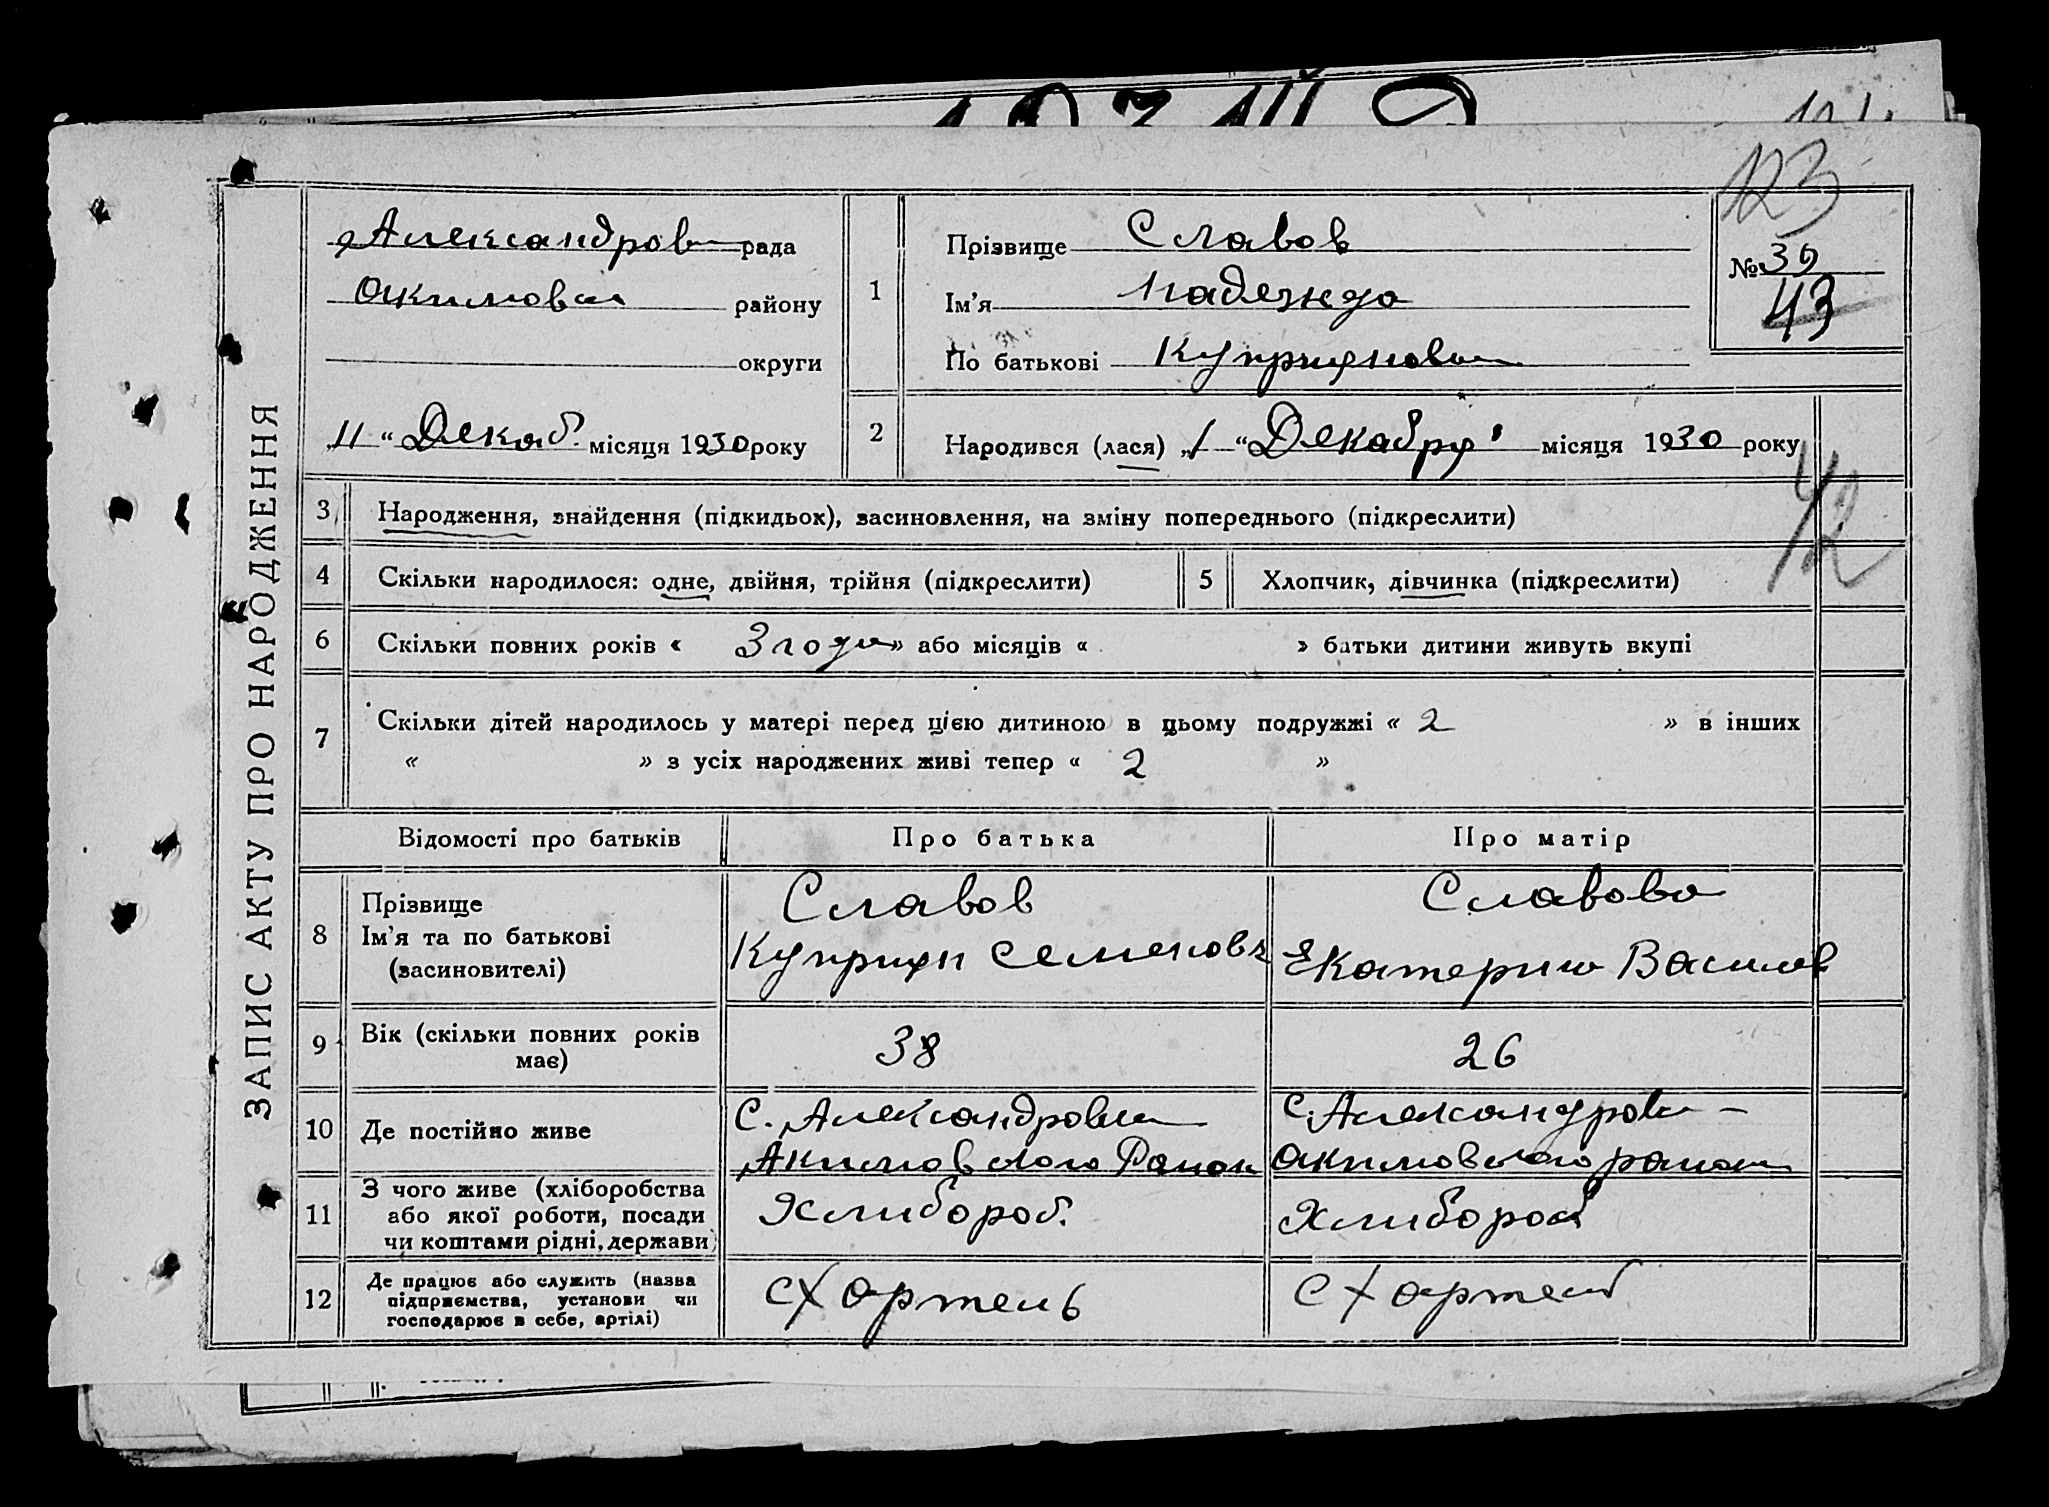 123
ЗАПИС АКТУ ПРО НАРОДЖЕННЯ
Александровк рада
Акимовск району
округи
„11“ Декаб. місяця 1930 року
1
Прізвище Славов
Ім'я Надежда
По батькові Куприяновна
№ 39
43
2
Народився (лася) „1“ Декабря місяця 1930 року
42
3 Народження, знайдення (підкидьох), засиновлення, на зміну попереднього (підкреслити)
4 Скільки народилося: одне, двійня, трійня (підкреслити) 5 Хлопчик, дівчинка (підкреслити)
6 Скільки повних років « 3 года » або місяців « » батьки дитини живуть вкупі
7 Скільки дітей народилось у матері перед цією дитиною в цьому подружжі « 2 » в інших
« » з усіх народжених живі тепер « 2 »
Відомості про батьків Про батька Про матір
8 Прізвище
Ім'я та по батькові
(засиновителі)
Славов
Куприян Семенов
Славова
Екатерина Васильев
9 Вік (скільки повних років
має)
38 26
10 Де постійно живе
С. Александровка
Акимовского Район
С. Александровк –
Акимовского район
11 З чого живе (хліборобства
або якої роботи, посади
чи коштами рідні, держави)
Хлибороб. Хлибороб
12 Де працює або служить (назва
підприємства, установи чи
господарює в себе, артілі)
СХ артель СХ артель